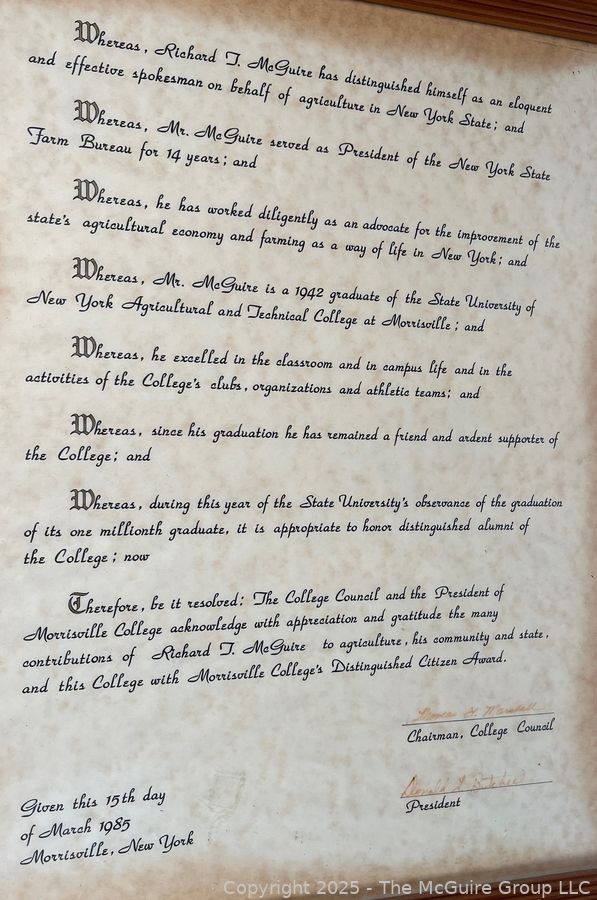 Whereas, Richard T. McGuire has distinguished himself as an eloquent
and effective spokesman on behalf of agriculture in New York State; and
Whereas, Mr. McGuire served as President of the New York State
Farm Bureau for 14 years; and
Whereas, he has worked diligently as an advocate for the improvement of the
state's agricultural economy and farming as a way of life in New York; and
Whereas, Mr. McGuire is a 1942 graduate of the State University of
New York Agricultural and Technical College at Morrisville; and
Whereas, he excelled in the classroom and in campus life and in the
activities of the College's clubs, organizations and athletic teams; and
Whereas, since his graduation he has remained a friend and ardent supporter of
the College; and
Whereas, during this year of the State University's observance of the graduation
of its one millionth graduate, it is appropriate to honor distinguished alumni of
the College; now
Therefore, be it resolved: The College Council and the President of
Morrisville College acknowledge with appreciation and gratitude the many
contributions of Richard T. McGuire to agriculture, his community and state,
and this College with Morrisville College's Distinguished Citizen Award.
Chairman, College Council
Donald
President
Given this 15th day
of March 1985
Morrisville, New York
Copyright 2025 - The McGuire Group LLC